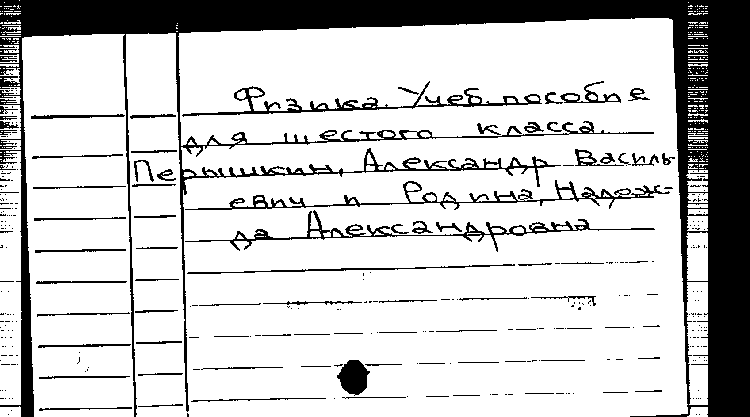 Физика. Учеб. пособие
для шестого класса.
Перышкин, Александр Василь-
евич и Родина, Надеж-
да Александровна